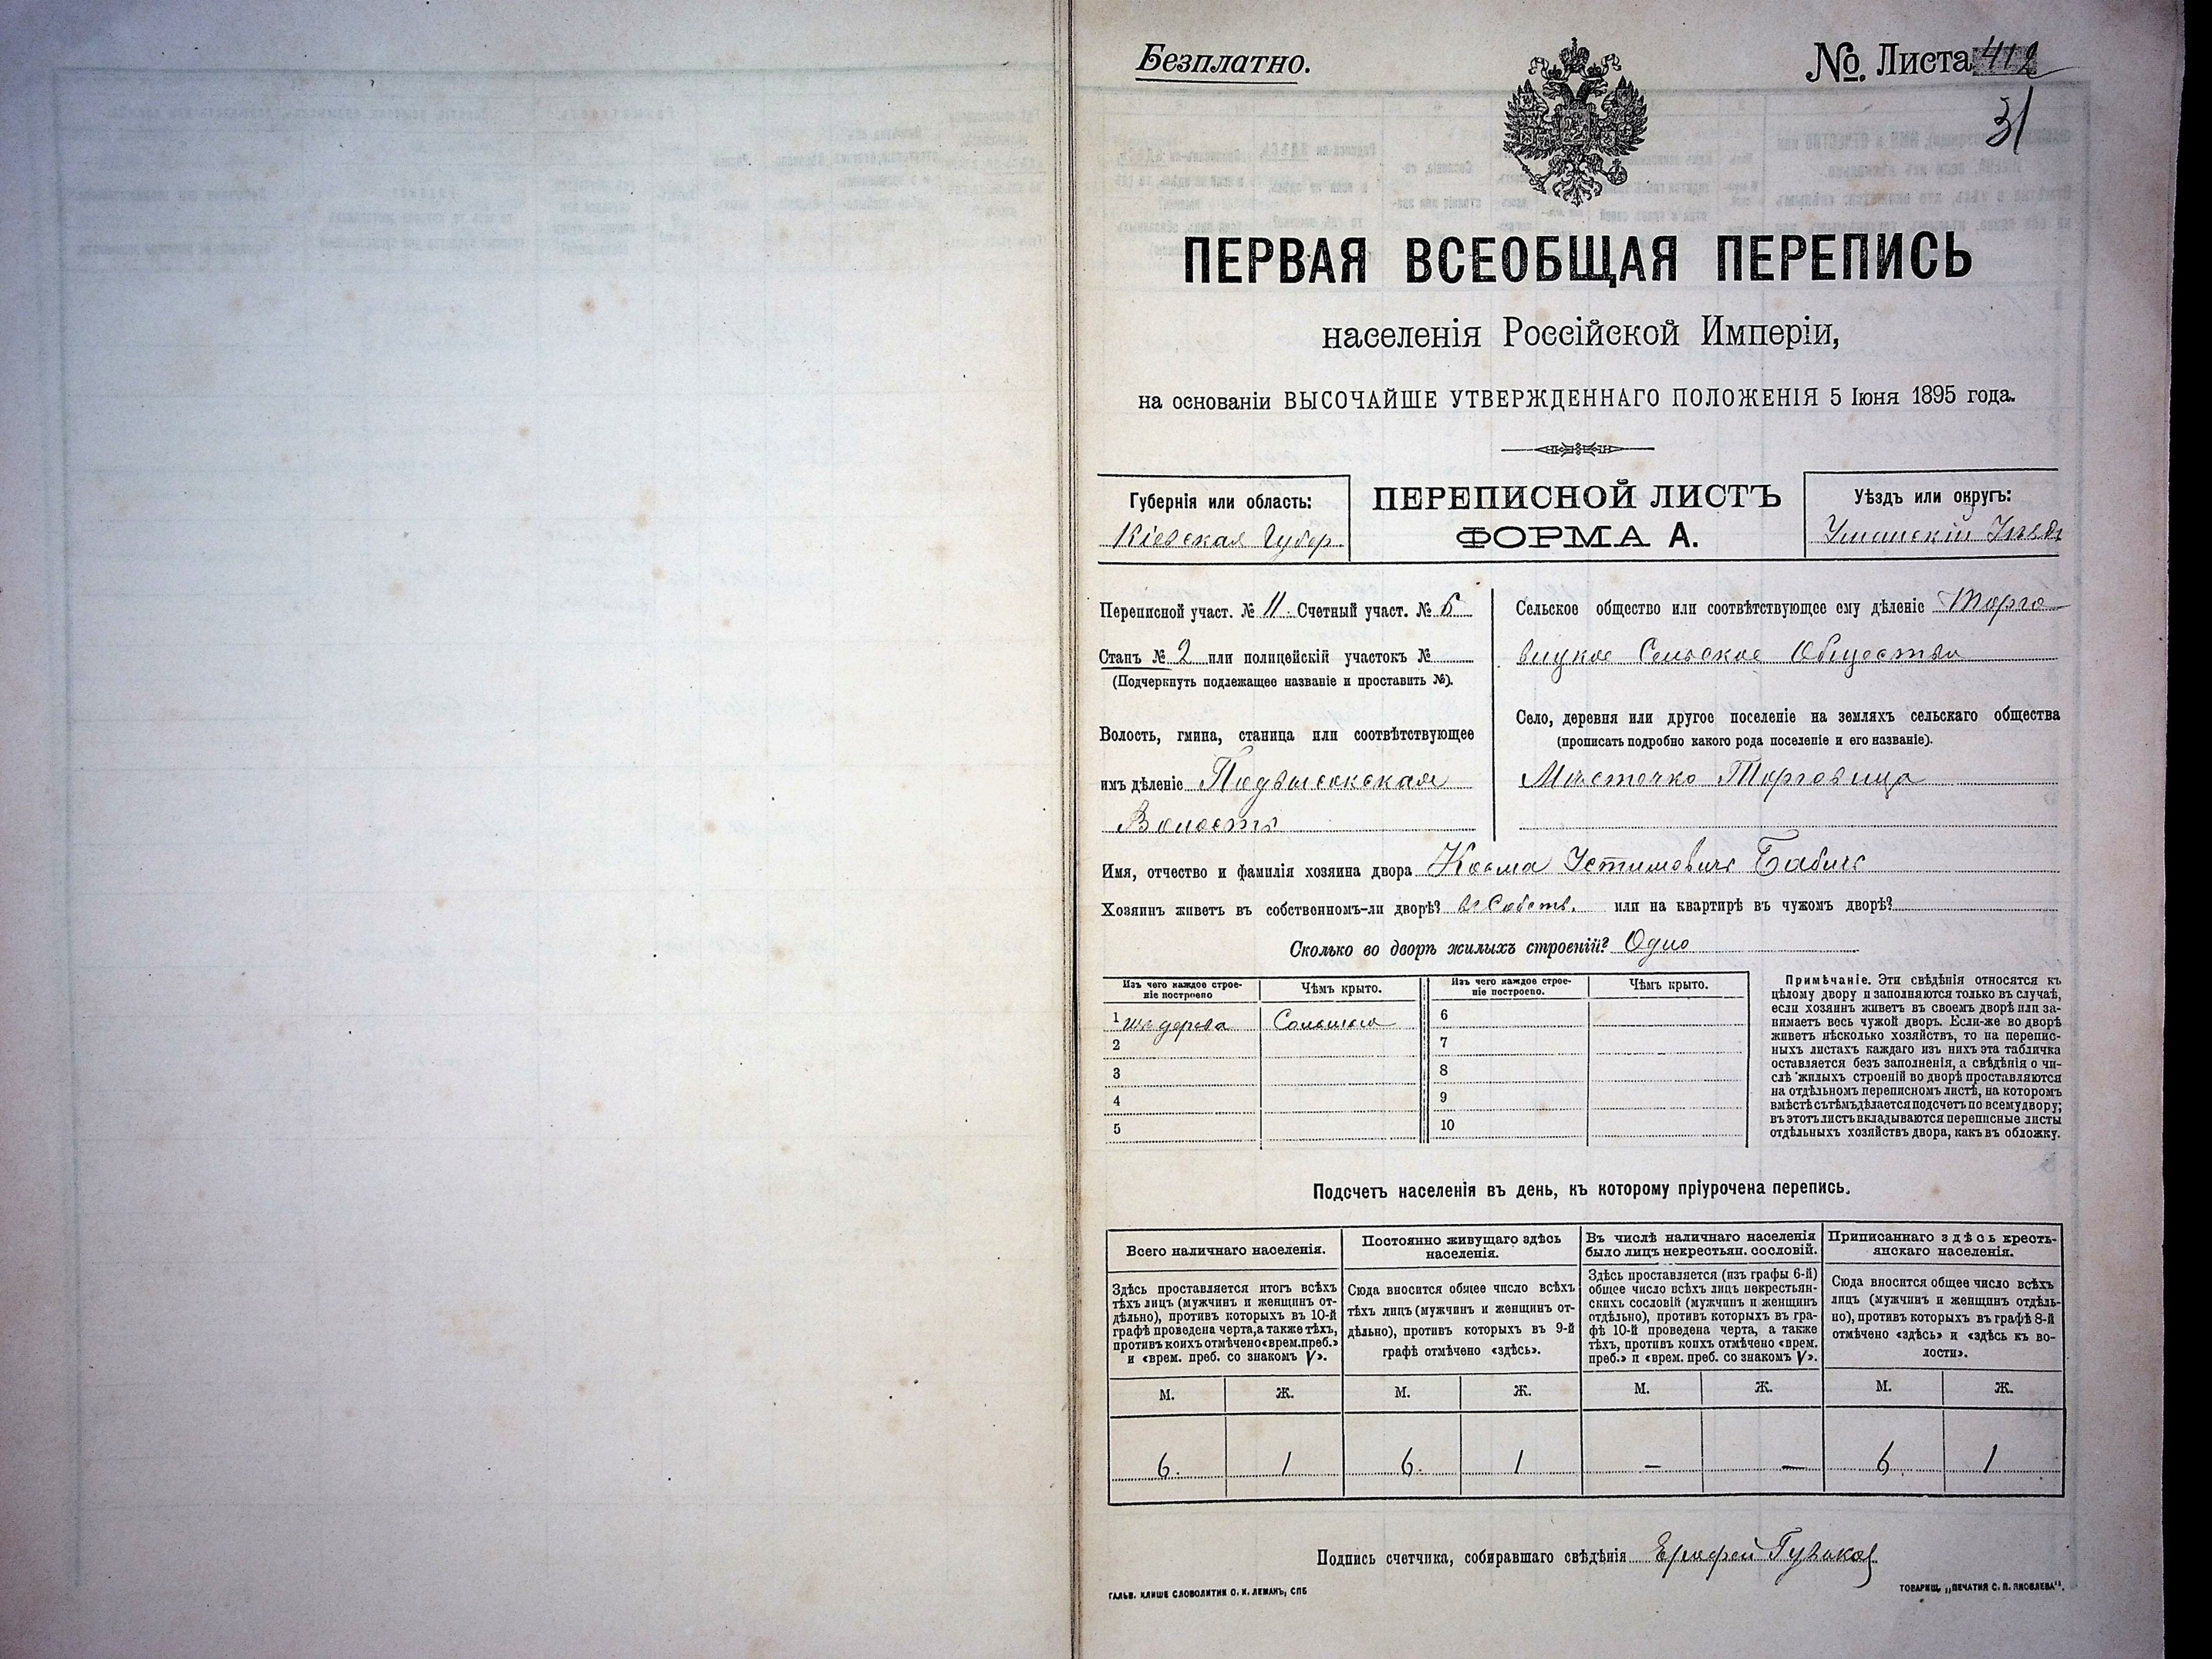 Безплатно.
№ Листа 412
31
ПЕРВАЯ ВСЕОБЩАЯ ПЕРЕПИСЬ
населенія Россійской Имперіи,
на основаніи ВЫСОЧАЙШЕ УТВЕРЖДЕННАГО ПОЛОЖЕНІЯ 5 Іюня 1895 года.
Губернія или область:
Кіевская Губер.
ПЕРЕПИСНОЙ ЛИСТЪ
ФОРМА А.
Уѣздъ или округъ:
Уманскій Уѣздъ
Переписной участ. № 11. Счетный участ. № 6
Станъ № 2 или полицейскій участокъ №
(Подчеркнуть подлежащее названіе и проставить №).
Волость, гмина, станица или соотвѣтствующее
имъ дѣленіе Подвысокская
Волость
Сельское общество или соотвѣтствующее ему дѣленіе Торго
вицкое Сельское Общество
Село, деревня или другое поселеніе на земляхъ сельскаго общества
(прописать подробно какого рода поселеніе и его названіе).
Мѣстечко Торговица
Имя, отчество и фамилія хозяина двора Косма Устимовичъ Бабичъ
Хозяинъ живетъ въ собственномъ-ли дворѣ? въ Собств. или на квартирѣ въ чужомъ дворѣ?
Сколько во дворѣ жилыхъ строеній? Одно
Изъ чего каждое строе-
ніе построено
Чѣмъ крыто.
Изъ чего каждое строе-
ніе построено.
Чѣмъ крыто.
1 изъ дерева Соломою
2
3
4
5
6
7
8
9
10
Примѣчаніе. Эти свѣдѣнія относятся къ
цѣлому двору и заполняются только въ случаѣ,
если хозяинъ живетъ въ своемъ дворѣ или за-
нимаетъ весь чужой дворъ. Если-же во дворѣ
живетъ нѣсколько хозяйствъ, то на перепис-
ныхъ листахъ каждаго изъ нихъ эта табличка
оставляется безъ заполненія, а свѣдѣнія о чи-
слѣ жилыхъ строеній во дворѣ проставляются
на отдѣльномъ переписномъ листѣ, на которомъ
вмѣстѣ съ тѣмъ дѣлается подсчетъ по всему двору;
въ этотъ листъ вкладываются переписные листы
отдѣльныхъ хозяйствъ двора, какъ въ обложку.
Подсчетъ населенія въ день, къ которому пріурочена перепись.
Всего наличнаго населенія.
Здѣсь проставляется итогъ всѣхъ
тѣхъ лицъ (мужчинъ и женщинъ от-
дѣльно), противъ которыхъ въ 10-й
графѣ проведена черта, а также тѣхъ,
противъ коихъ отмѣчено «врем. преб.»
и «врем. преб. со знакомъ V».
Постоянно живущаго здѣсь
населенія.
Сюда вносится общее число всѣхъ
тѣхъ лицъ (мужчинъ и женщинъ от-
дѣльно), противъ которыхъ въ 9-й
графѣ отмѣчено «здѣсь».
Въ числѣ наличнаго населенія
было лицъ некрестьян. сословій.
Здѣсь проставляется (изъ графы 6-й)
общее число всѣхъ лицъ некрестьян-
скихъ сословій (мужчинъ и женщинъ
отдѣльно), противъ которыхъ въ гра-
фѣ 10-й проведена черта, а также
тѣхъ, противъ коихъ отмѣчено «врем.
преб.» и «врем. преб. со знакомъ V».
Приписаннаго здѣсь кресть-
янскаго населенія.
Сюда вносится общее число всѣхъ
лицъ (мужчинъ и женщинъ отдѣль-
но), противъ которыхъ въ графѣ 8-й
отмѣчено «здѣсь» и «здѣсь къ во-
лости».
М. Ж. М. Ж. М. Ж. М. Ж.
6. 1 6. 1 — — 6 1
Подпись счетчика, собиравшаго свѣдѣнія
ГАЛЬВ. КЛИШЕ СЛОВОЛИТНИ О. И. ЛЕМАНЪ, СПБ
ТОВАРИЩ. „ПЕЧАТНЯ С. П. ЯКОВЛЕВА".